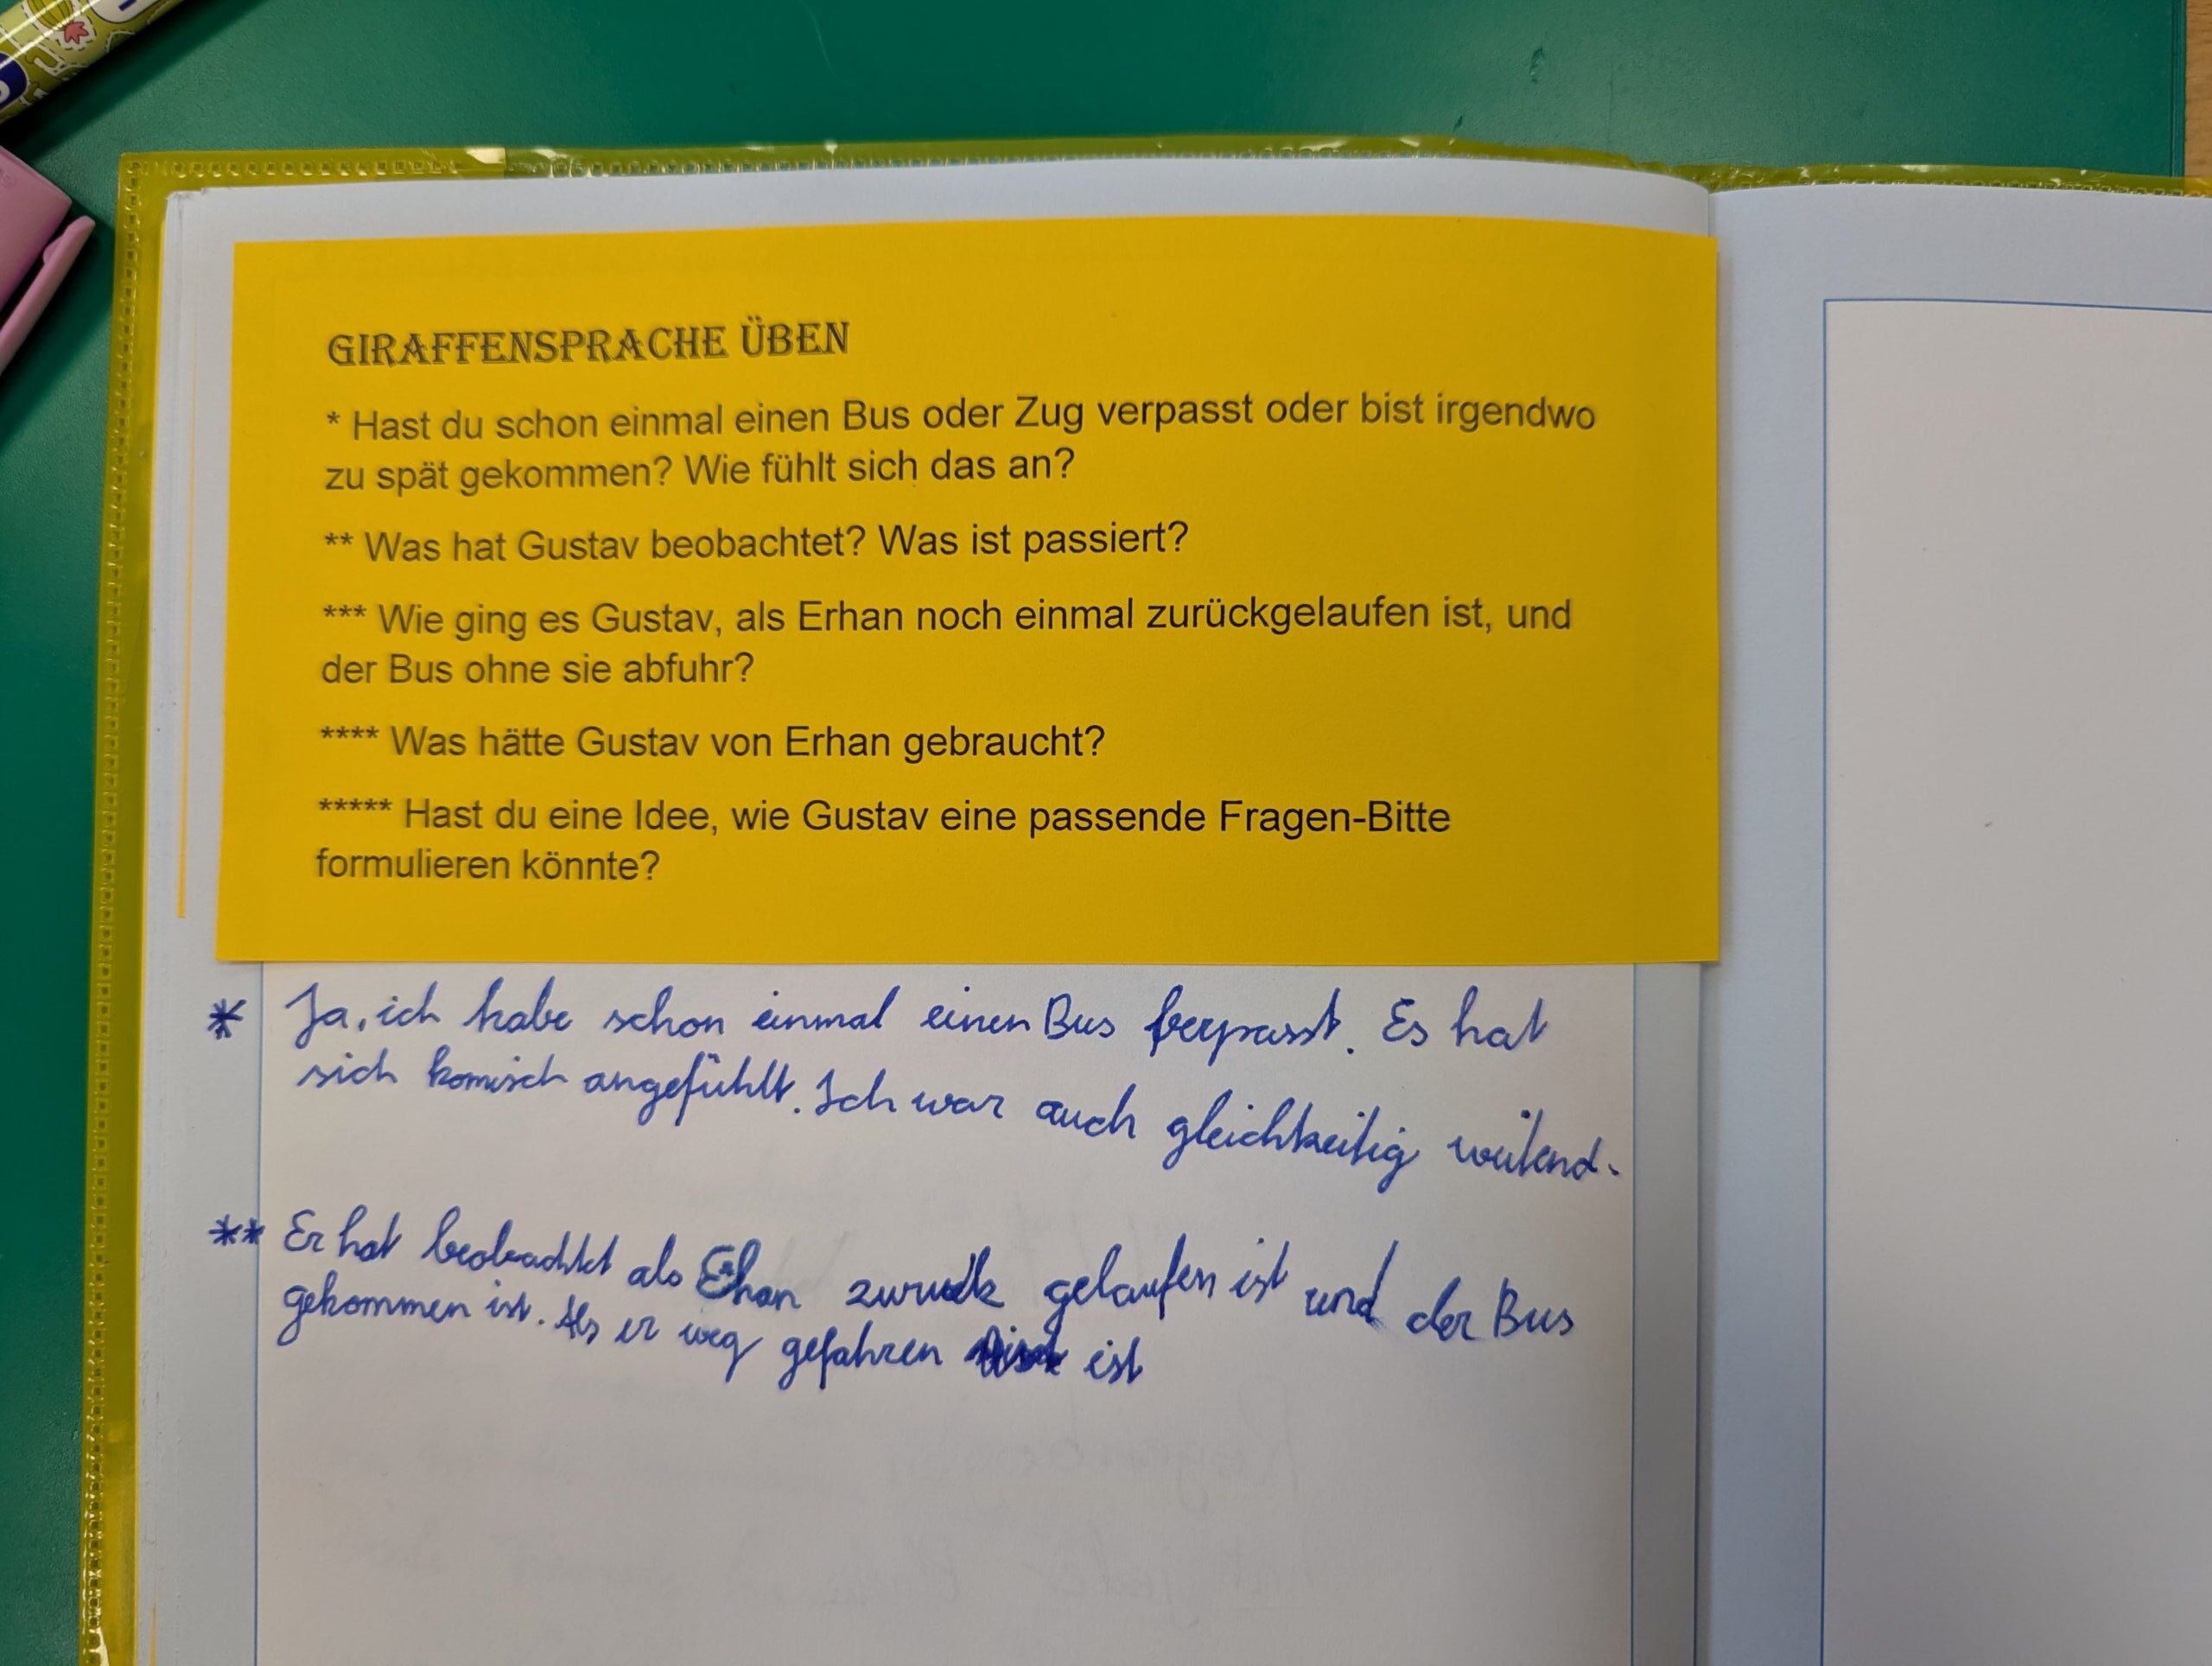 GIRAFFENSPRACHE ÜBEN
* Hast du schon einmal einen Bus oder Zug verpasst oder bist irgendwo
zu spät gekommen? Wie fühlt sich das an?
** Was hat Gustav beobachtet? Was ist passiert?
*** Wie ging es Gustav, als Erhan noch einmal zurückgelaufen ist, und
der Bus ohne sie abfuhr?
**** Was hätte Gustav von Erhan gebraucht?
***** Hast du eine Idee, wie Gustav eine passende Fragen-Bitte
formulieren könnte?
* Ja, ich habe schon einmal einen Bus ferpasst. Es hat
sich komisch angefühlt. Ich war auch gleichkeitig wütend.
** Er hat beobachtet als Ehan zurück gelaufen ist und der Bus
gekommen ist. Als er weg gefahren ist